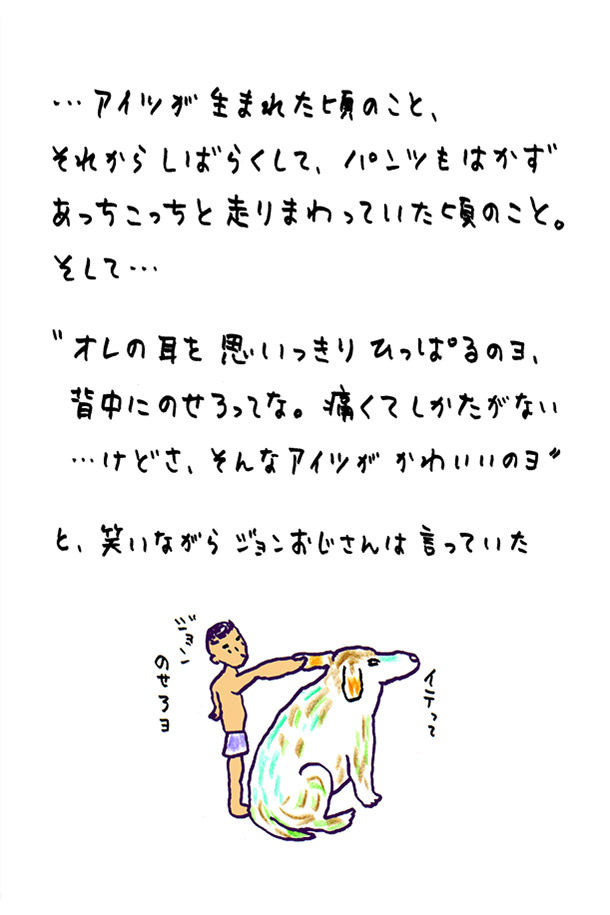 …アイツが生まれた頃のこと、
それからしばらくして、パンツもはかず
あっちこっちと走りまわっていた頃のこと。
そして…
〝オレの耳を思いっきりひっぱるのヨ、
背中にのせろってな。痛くてしかたがない
…けどさ、そんなアイツがかわいいのヨ〞
と、笑いながらジョンおじさんは言っていた
ジョン
のせろヨ
イテって